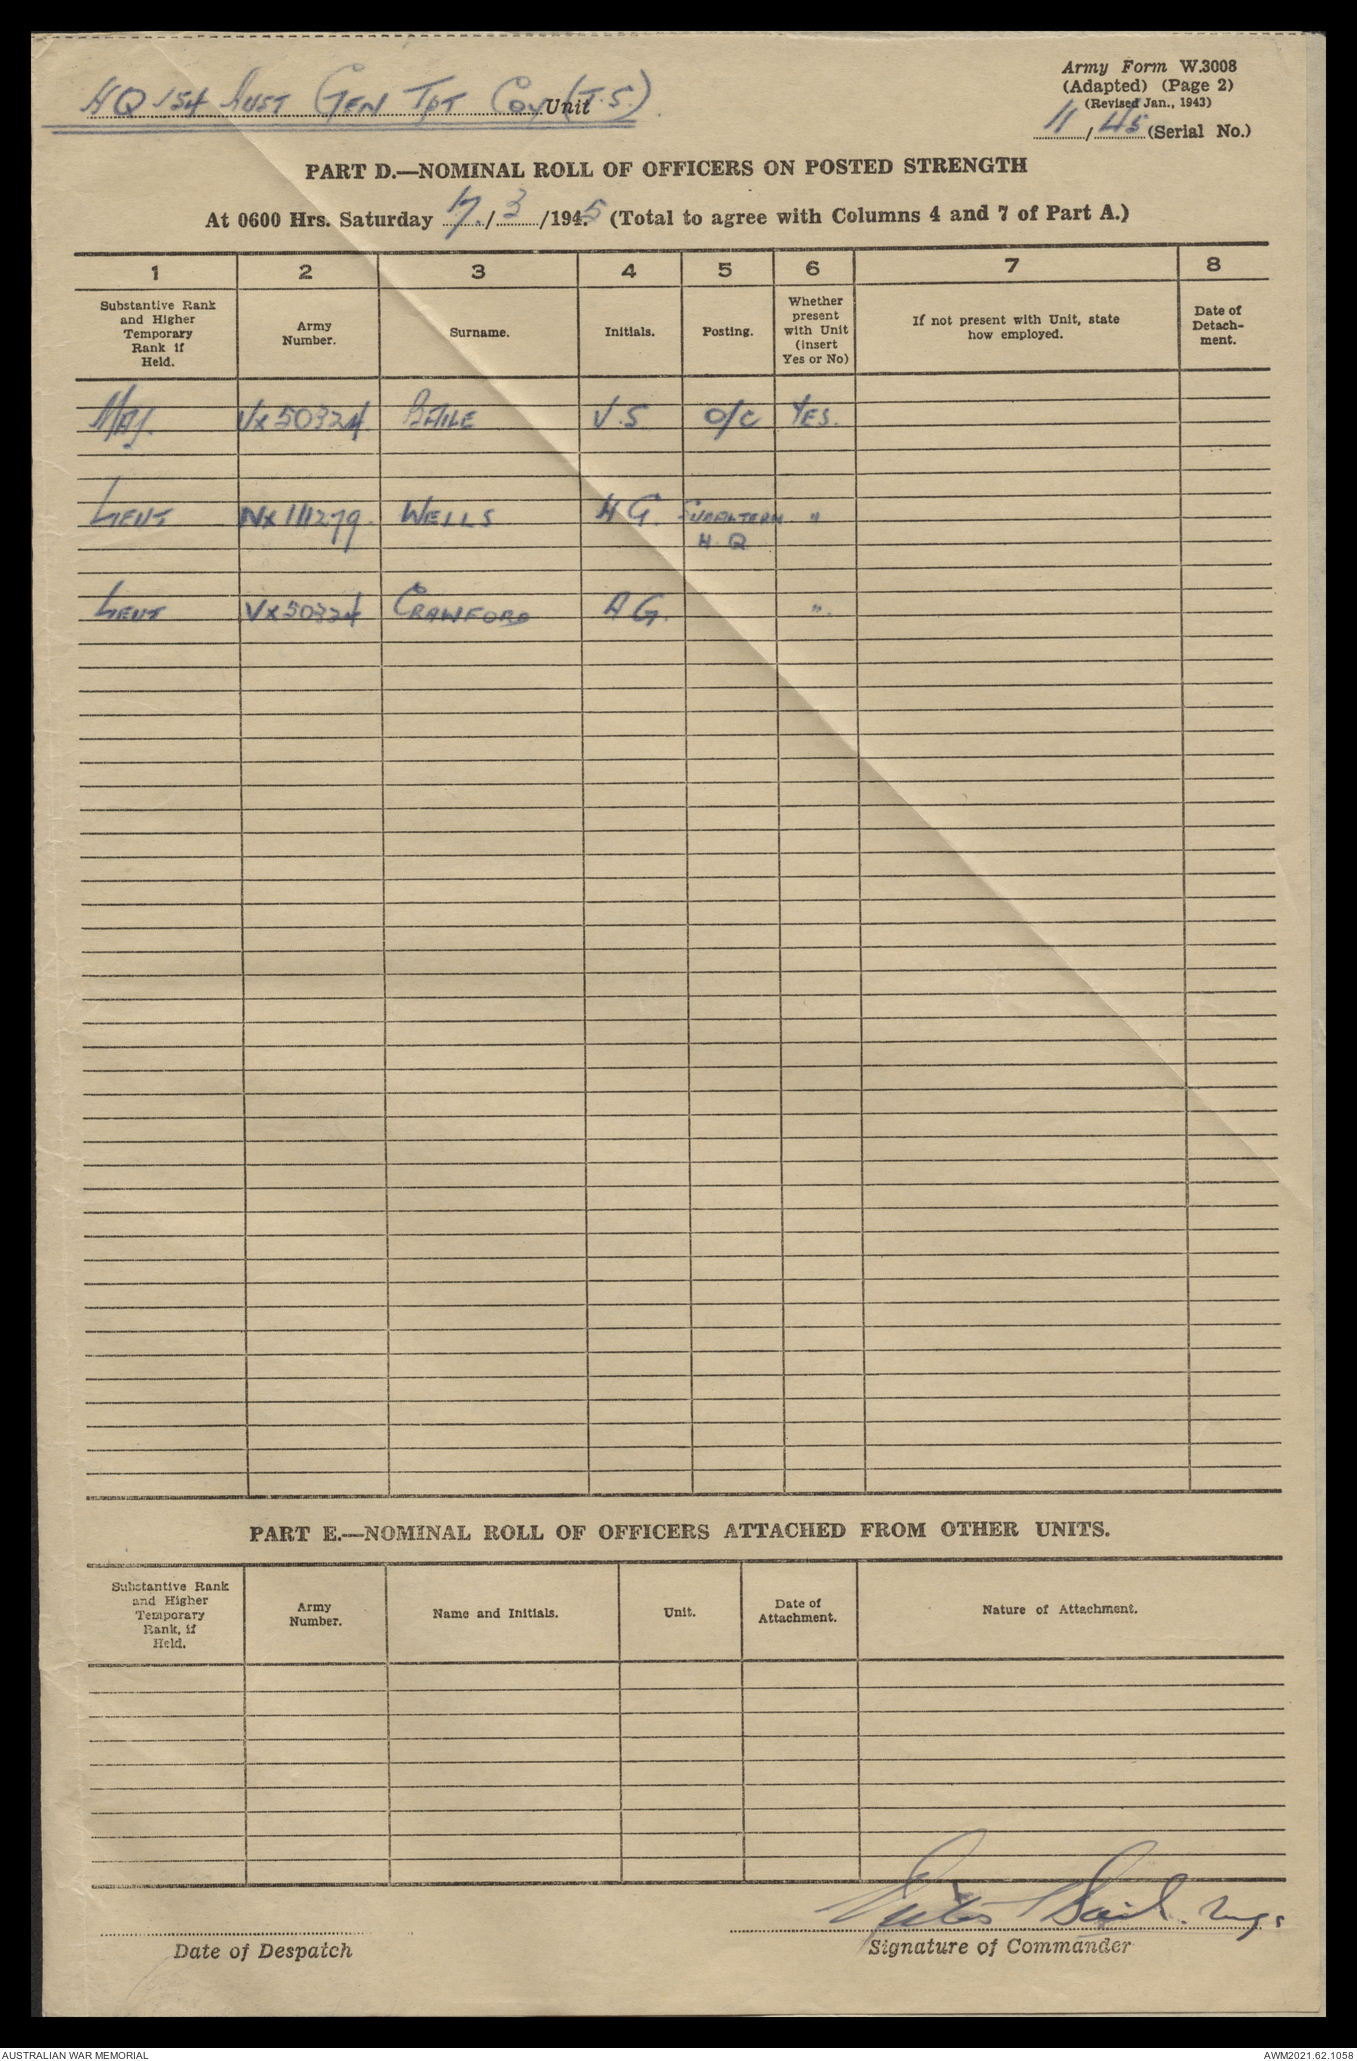 HQ 154 Aust Gen Tpt Coy (T.S.). Unit
Army Form W.3008
(Adapted) (Page 2)
(Revised Jan., 1943)
11/45 (Serial No.)
PART D.—NOMINAL ROLL OF OFFICERS ON POSTED STRENGTH
At 0600 Hrs. Saturday 17./3/1945 (Total to agree with Columns 4 and 7 of Part A.)
1 2 3 4 5 6 7 8
Substantive Rank and Higher Temporary Rank if Held.
Army Number.
Surname.
Initials.
Posting.
Whether present with Unit (insert Yes or No)
If not present with Unit, state how employed.
Date of Detachment.
Maj. VX50324 V.S O/C YES.
Lieut NX111279. WELLS H G. SUBALTERN "
H Q
Lieut VX50324 CRAWFORD A G. "
PART E.—NOMINAL ROLL OF OFFICERS ATTACHED FROM OTHER UNITS.
Substantive Rank and Higher Temporary Rank, if Held.
Army Number.
Name and Initials.
Unit.
Date of Attachment.
Nature of Attachment.
Date of Despatch
Signature of Commander
AUSTRALIAN WAR MEMORIAL
AWM2021.62.1058